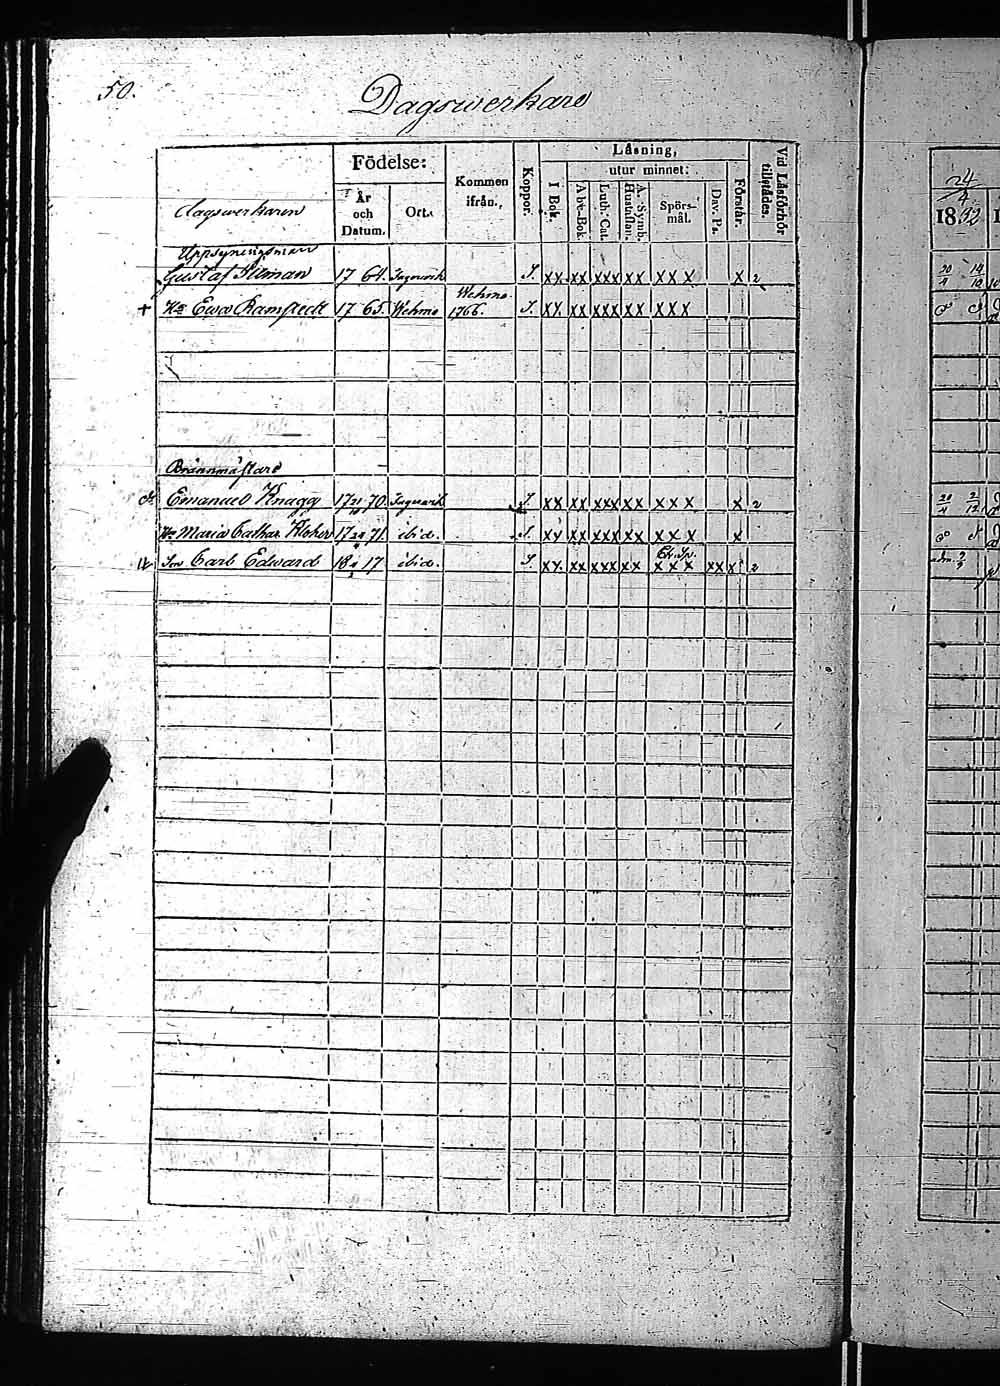 50.
Dagswerkare
Dagswerkaren
Födelse:
År och Datum.
Ort.
Kommen ifrån.
Koppor.
Läsning,
I Bok.
utur minnet:
Abc-Bok.
Luth. Cat.
A. Symb. Hustaflan.
Spörsmål.
Dav. Ps.
Förstår.
Vid Läsförhör tillstädes.
24/4
1832
Uppsyningsman
Gustaf 1764. S. xx xx xxx xx xxx x 2 20/4 14/10
+ Hu Ewa Ramstedt 1765. Wehmo Wehmo 1766. S. xx xx xxx xx xxx
Brännmästare
Emanuel Knagg 17 70. S. xx xx xxx xx xxx x 2 20/4 2/12
Hu Maria Cathar. 17 71. ibid. S. xx xx xxx xx xxx x
Son Carl Edward 18 17 ibid. S. xx xx xxx xx xxx xx x 2